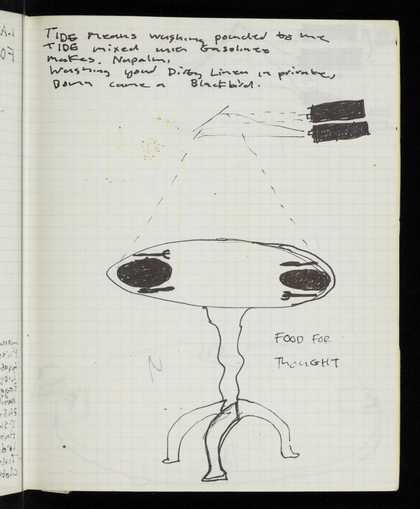 TIDE means washing powder to me
TIDE mixed with Gasoline
makes. Napalm.
Washing your Dirty Linen in private,
Down came a Blackbird.
FOOD FOR
THOUGHT
N